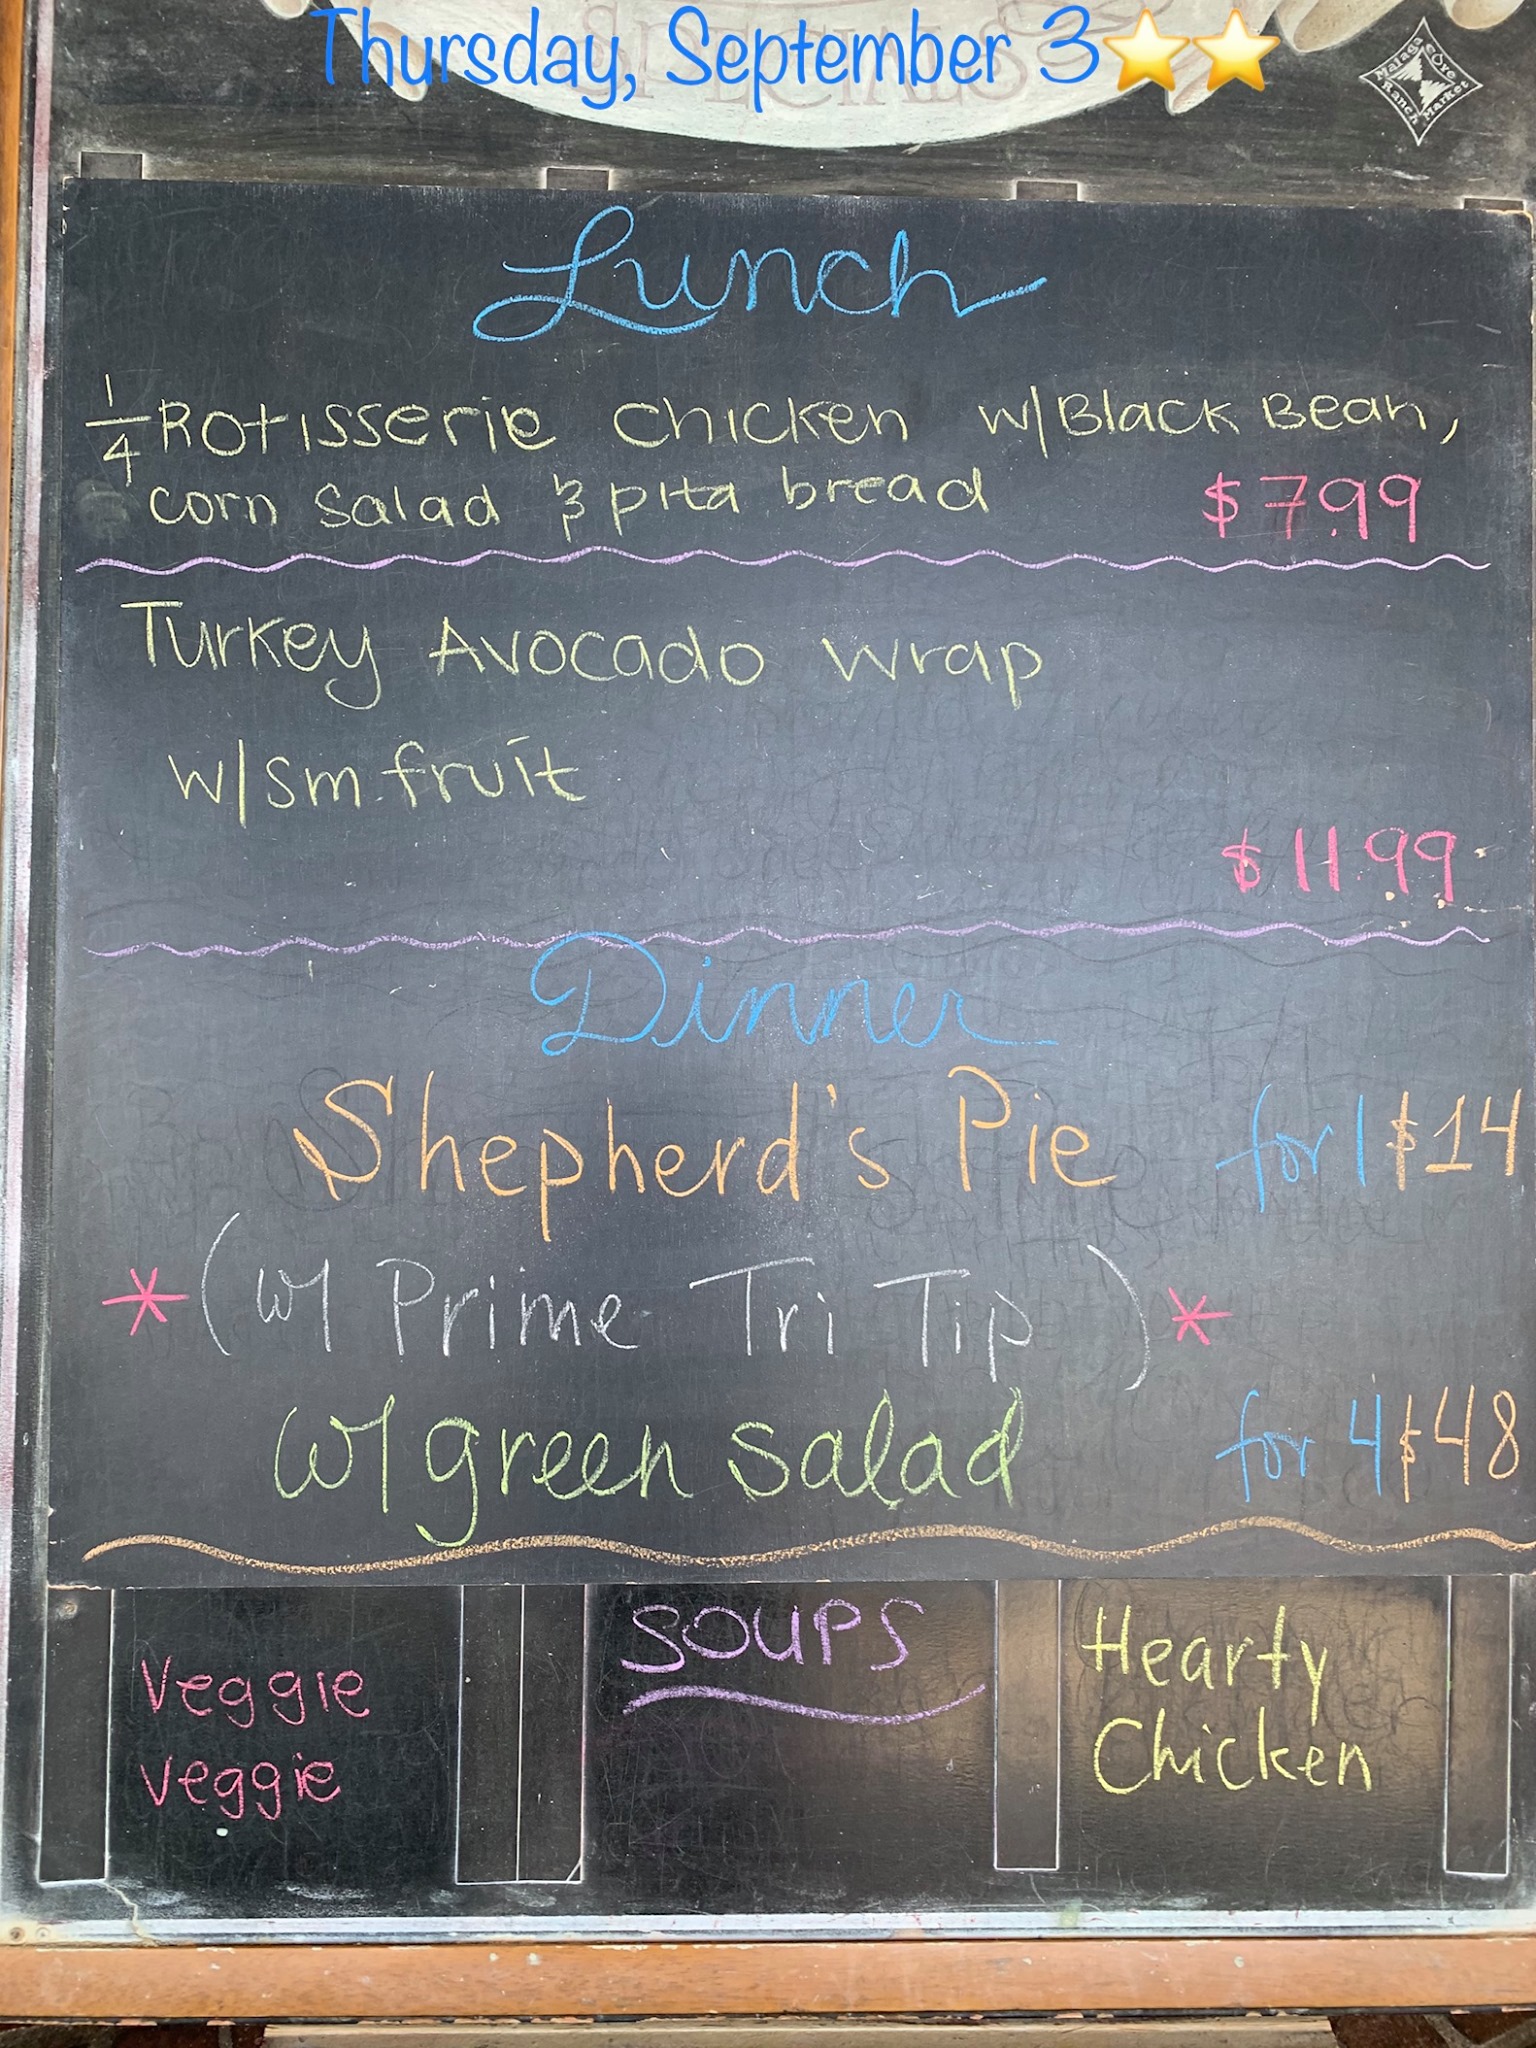 Thursday, September 3⭐⭐
SPECIALS
Malaga Cove
Ranch Market
Lunch
1/4 Rotisserie chicken w/Black Bean,
corn salad & pita bread $7.99
Turkey Avocado wrap
w/sm. fruit
$11.99
Dinner
Shepherd's Pie for 1 $14
*(w/ Prime Tri Tip)*
w/ green salad for 4 $48
Veggie
veggie
SOUPS
Hearty
Chicken